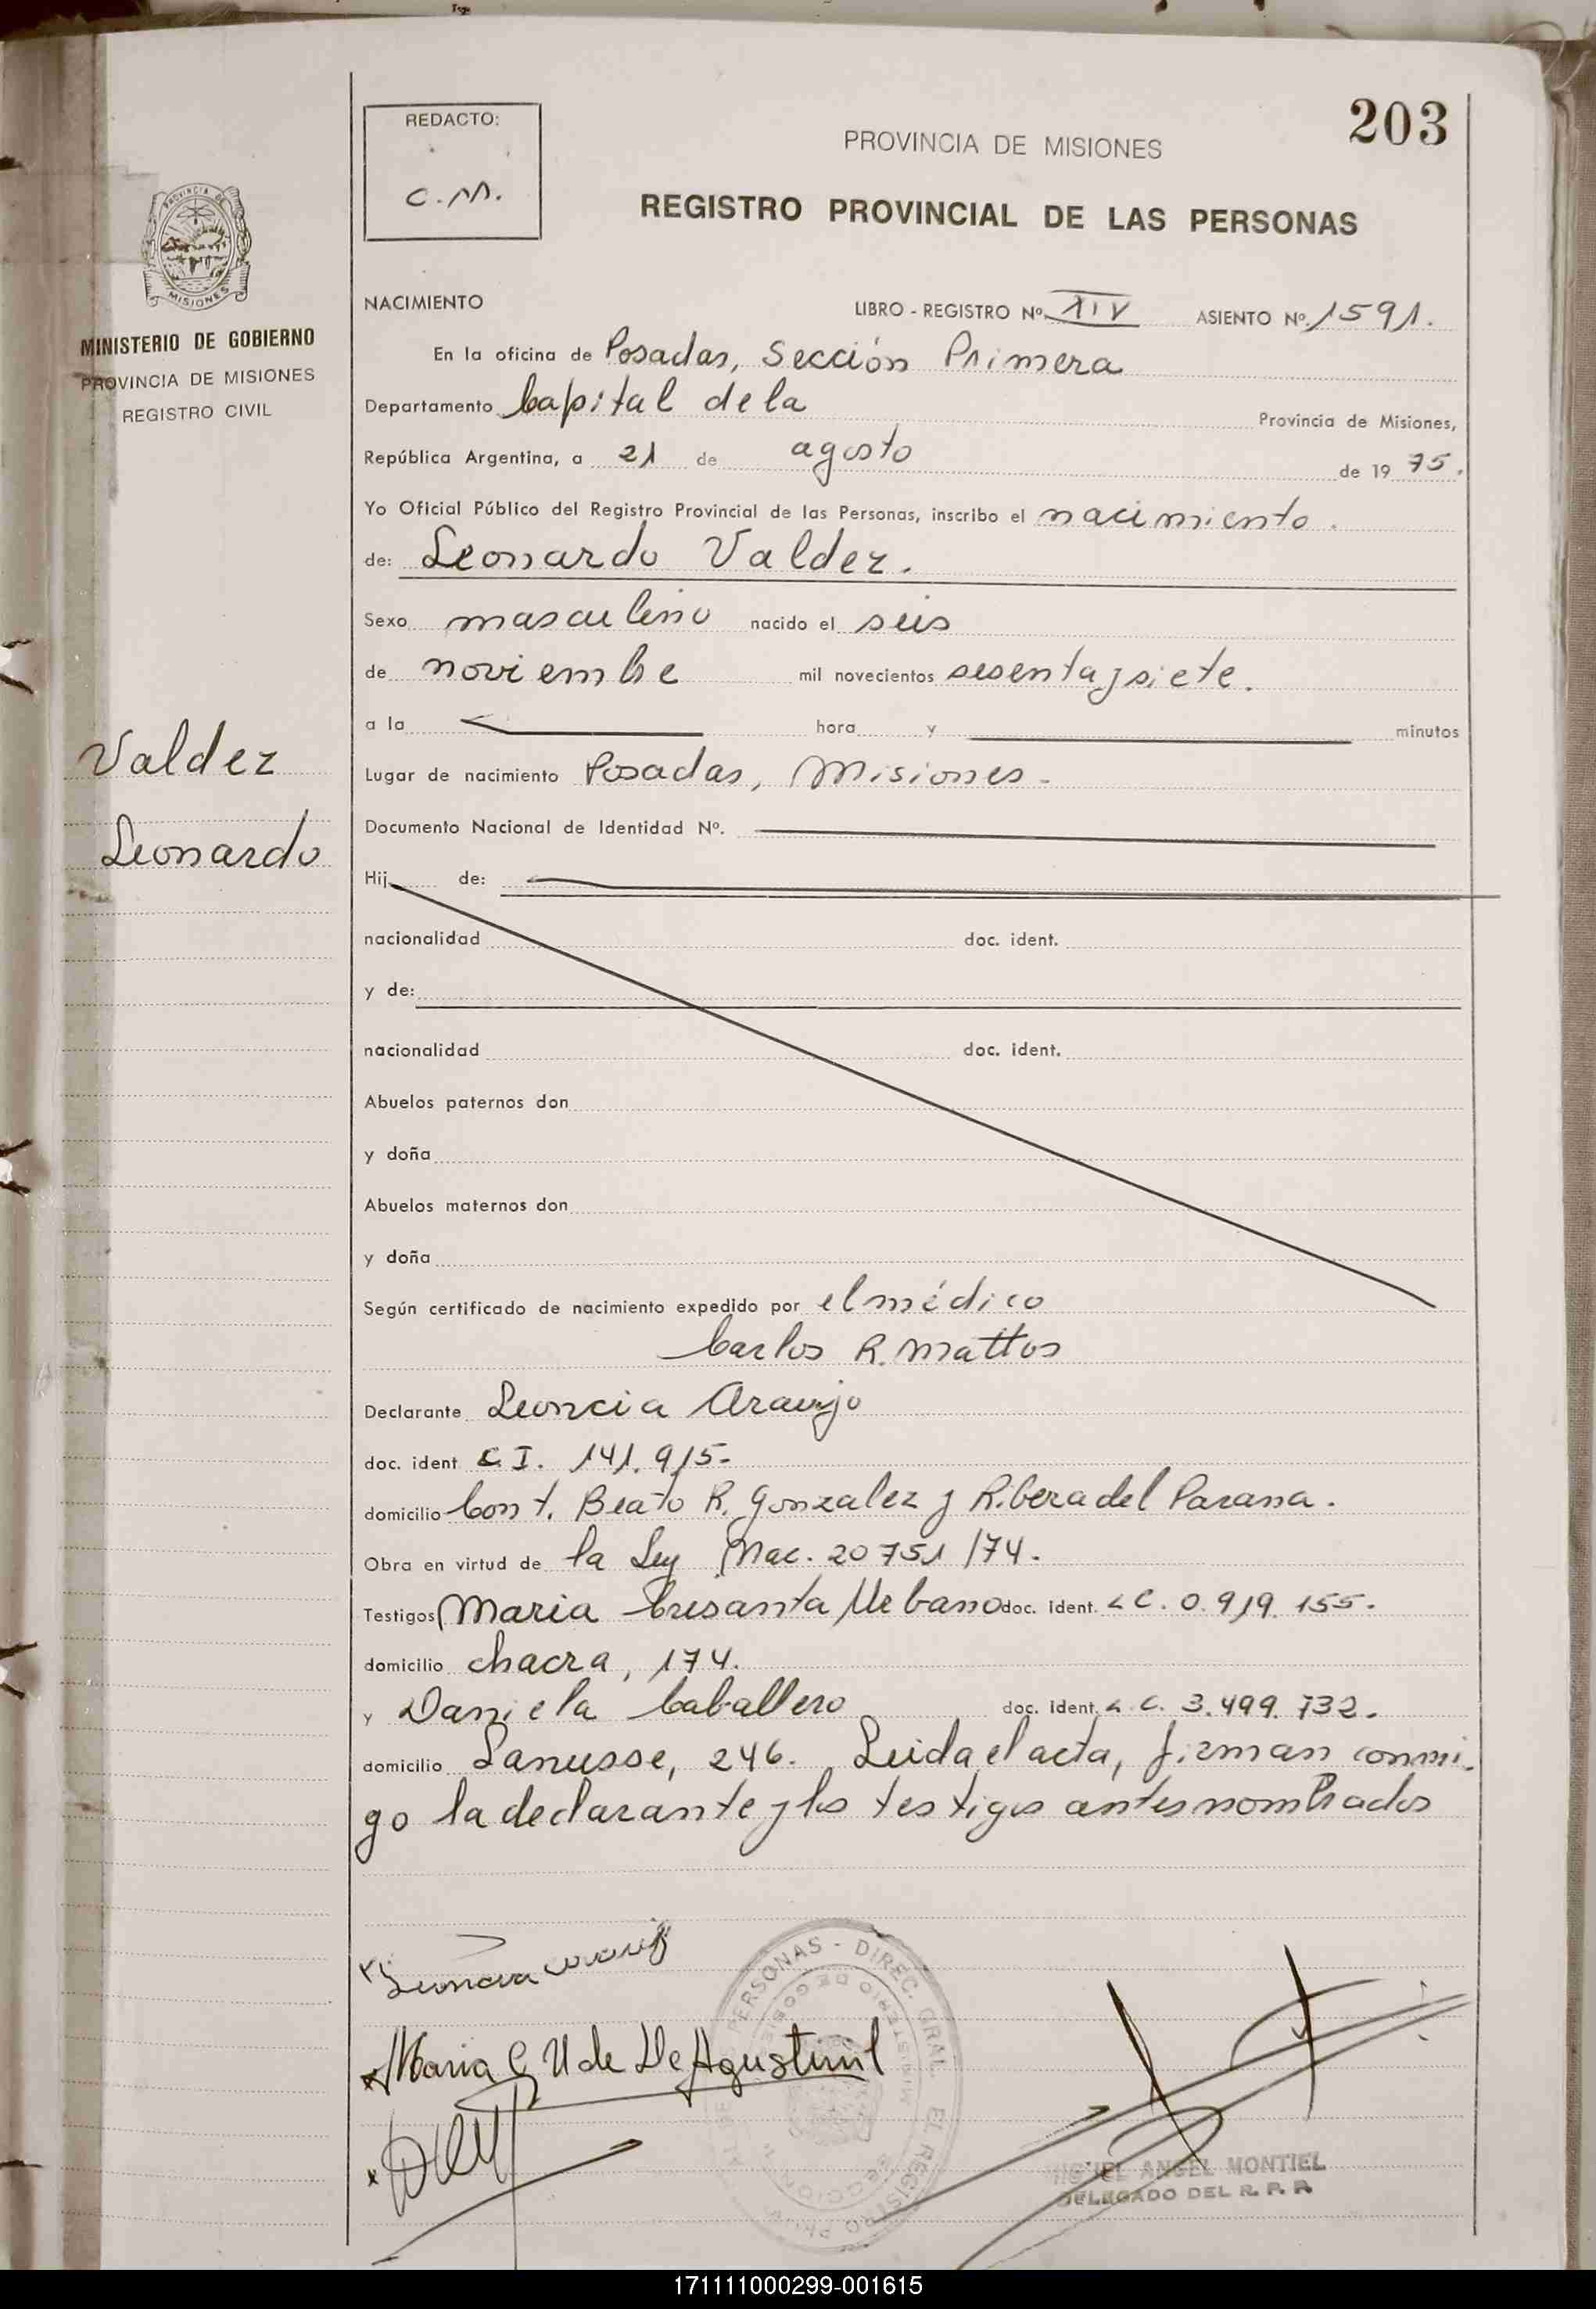 203
REDACTO:
C.M.
PROVINCIA DE MISIONES
REGISTRO PROVINCIAL DE LAS PERSONAS
PROVINCIA DE
MISIONES
MINISTERIO DE GOBIERNO
PROVINCIA DE MISIONES
REGISTRO CIVIL
NACIMIENTO LIBRO - REGISTRO Nº XIV ASIENTO Nº 1591.
En la oficina de Posadas, Sección Primera
Departamento Capital de la Provincia de Misiones,
República Argentina, a 21 de agosto de 19 75.
Yo Oficial Público del Registro Provincial de las Personas, inscribo el nacimiento.
de: Leonardo Valdez.
Sexo masculino nacido el seis
de noviembre mil novecientos sesenta y siete.
a la hora y minutos
Valdez
Leonardo
Lugar de nacimiento Posadas, Misiones-
Documento Nacional de Identidad Nº.
Hij de:
nacionalidad doc. ident.
y de:
nacionalidad doc. ident.
Abuelos paternos don
y doña
Abuelos maternos don
y doña
Según certificado de nacimiento expedido por el médico
Carlos R. Mattos
Declarante Leoncia Araujo
doc. ident C.I. 141.915-
domicilio Cont. Beato R. Gonzalez y Ribera del Parana.
Obra en virtud de la Ley Nac. 20751/74.
Testigos Maria Crisanta Urbano doc. ident. L C. 0.919.155.
domicilio chacra, 174.
y Daniela Caballero doc. ident. L.C. 3.499.732.
domicilio Lanusse, 246. Leida el acta, firman conmi-
go la declarante y los testigos antes nombrados
Maria C U de De Agustini
PERSONAS - DIREC. GRAL
EL REGISTRO
MINISTERIO DE GOBIE
SECCION
MIGUEL ANGEL MONTIEL
DELEGADO DEL R. P. P.
171111000299-001615